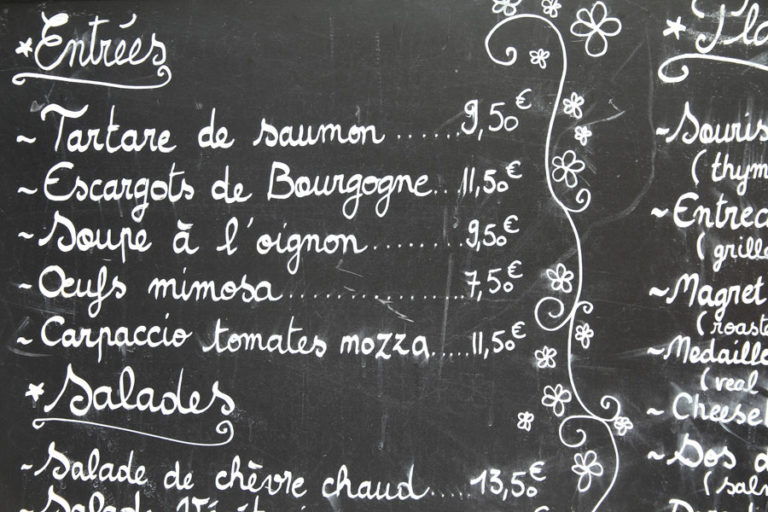 *Entrées
~Tartare de saumon......9,50€
~Escargots de Bourgogne..11,50€
~Soupe à l'oignon..........9,50€
~Œufs mimosa................7,50€
~Carpaccio tomates mozza.....11,50€
*Salades
~Salade de chèvre chaud.....13,50€
~Salade
*Pla
~Souris
(thym
~Entrec
(grille
~Magret
(roaste
~Medaillo
(veal
~Cheese
~Dos d
(sal